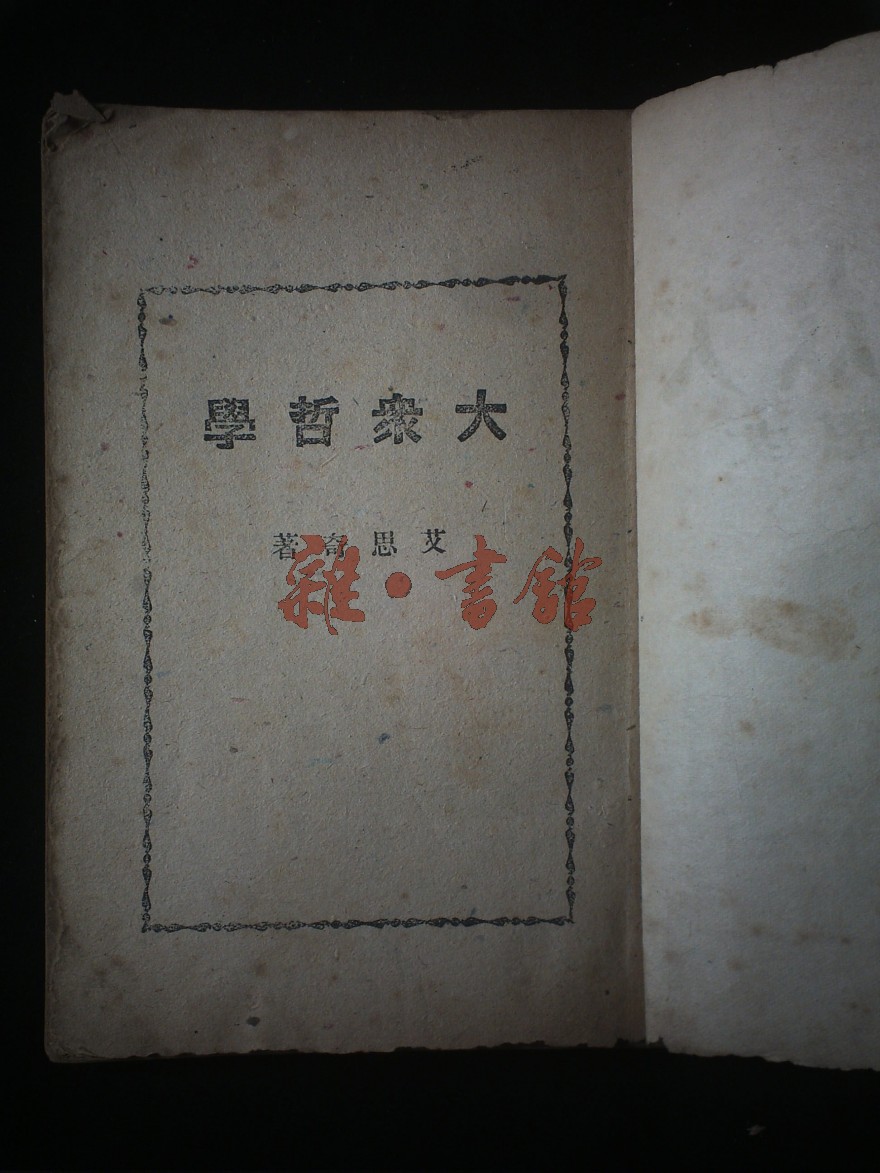 大衆哲學
艾思奇著
雜·書館